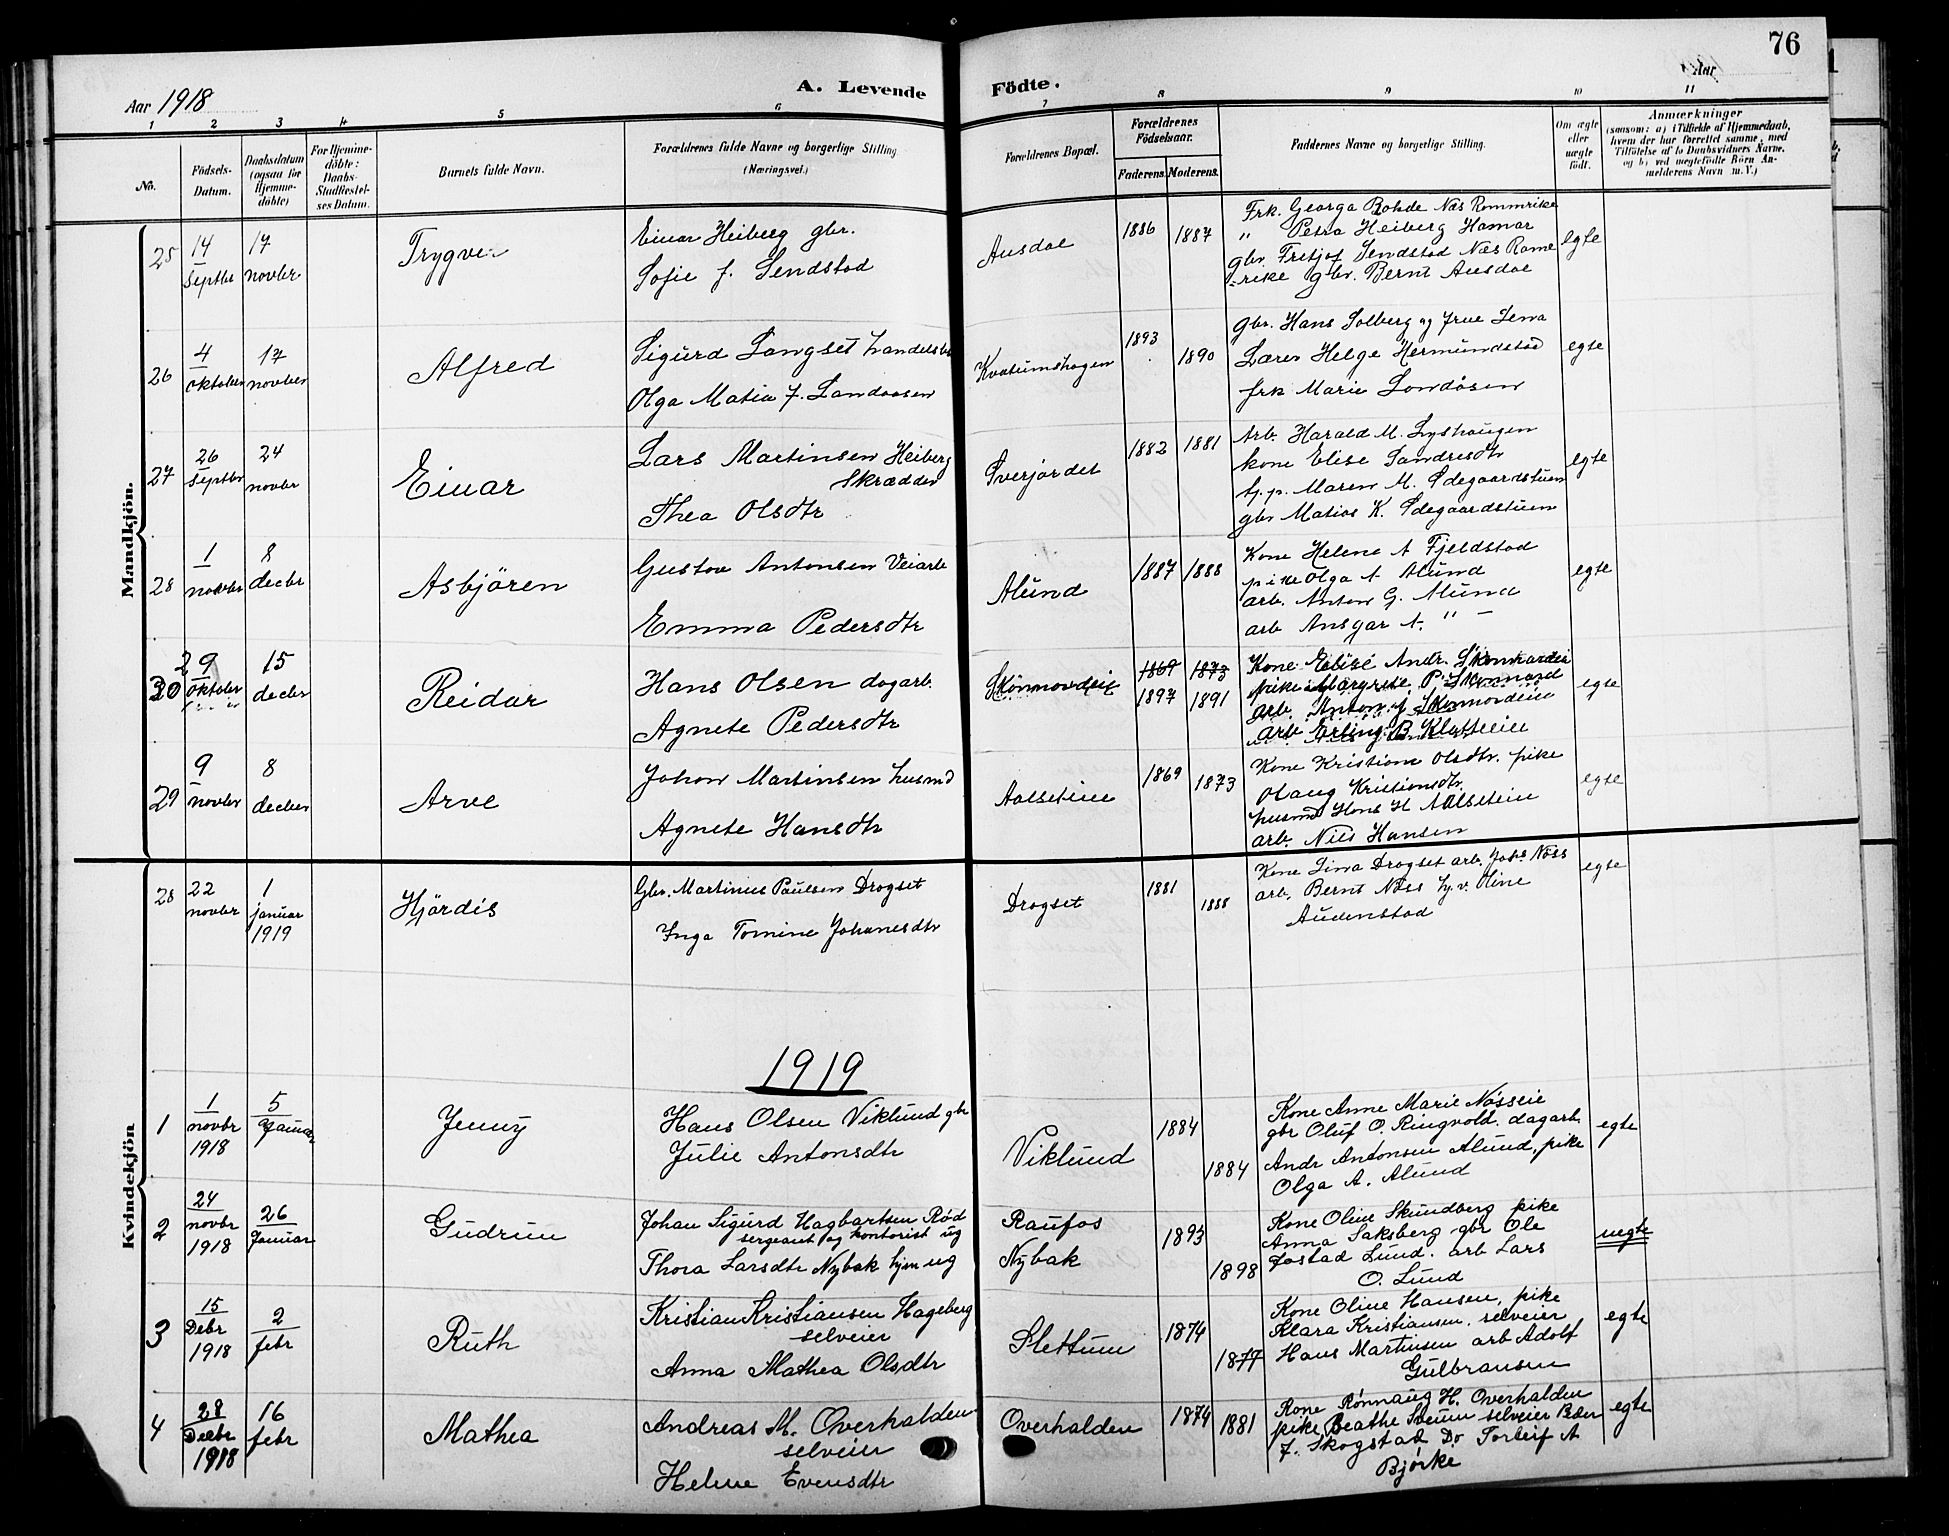 76
Aar 1918
A. Levende Födte.
Aar
1 2 3 4 5 6 7 8 9 10 11
No.
Födsels-
Datum.
Daabsdatum
(ogsaa for
Hjemme-
döbte)
For Hjemme-
döbte:
Daabs-
Stadfæstel-
ses Datum.
Barnets fulde Navn.
Forældrenes fulde Navne og borgerlige Stilling
(Næringsvei.)
Forældrenes Bopæl.
Forældrenes
Födselsaar.
Faderens. Moderens.
Faddernes Navne og borgerlige Stilling.
Om ægte
eller
uægte
født.
Anmærkninger
(saasom: a) i Tilfælde af Hjemmedaab,
hvem der har forrettet samme, med
Tilföielse af to Daabsvidners Navne,
og b) ved uegtefödte Börn An-
melderens Navn m. V.)
Mandkjön.
25
14
Septbr
17
novbr
Trygve
Einar Heiberg gbr.
Sofie f. Sendstad
Ausdal
1886 1887
Frk. Georga Rohde Næs Rommrike
" Petra Heiberg Hamar
gbr. Fritjof Sendstad Næs Rome
-rike gbr. Bernt Ausdal
egte
26
4
oktober
17
novber
Alfred
Sigurd Langset
Olga Matia f. Landaasen
Kvatumshagen
1893 1890
gbr. Hans Solberg og frue Lena
Lærer Helge Hermundstad
frk Marie Landåsen
egte
27
26
Septbr
24
novbr
Einar
Lars Martinsen Heiberg
Skrædder
Thea Olsdtr
Øverjordet
1882 1881
Arb. Harald M. Lyshaugen
kone Elise Sandersdtr
tj. p. Maren M. Ødegaardstuen
gbr Matias K. Ødegaardstuen
egte
28
1
novbr
8
decbr
Asbjören
Gustav Antonsen Veiarb
Emma Pedersdtr
Alund
1887 1888
Kone Helene A Fjeldstad
pike Olga A. Alund
arb. Anton G. Alund
arb Ansgar A. " —
egte
30
29
oktober
15
decbr
Reidar
Hans Olsen dagarb.
Agnete Pedersdtr
Skönnordeie
1869 1873
1897 1891
Kone Elise Andr.
pike Margrete P.
arb. Anton J
arb Erling B Klatteeie
egte
29
9
novbr
8
decber
Arve
Johan Martinsen husmd
Agnete Hansdtr
Aalseteie
1869 1873
Kone Kristiane Olsdtr. pike
Olaug Kristiansdtr.
husmd Hans H Aalseteie
arb. Nils Hansen
egte
Kvindekjön
28
22
novbr
1
januar
1919
Hjördis
Gbr. Martinus Paulsen Drogset
Inga Tomine Johanesdtr
Drogset
1881 1888
Kone Lina Drogset arb. Johs Næss
arb. Bernt Næss tj. v. Oline
Audenstad
egte
1919
1
1
novbr
1918
5
Januar
Jenny
Hans Olsen Viklund gbr
Julie Antonsdtr
Viklund
1884 1884
Kone Anne Marie Nøsseie
gbr Oluf O. Ringvold. dagarb
Andr Antonsen Alund, pike
Olga A. Alund
egte
2
24
novbr
1918
26
Januar
Gudrun
Johan Sigurd Hagbartsen Rød
sergeant og kontorist ug
Thora Larsdtr Nybak hjem ug
Raufos
Nybak
1893 1898
Kone Oline Skundberg pike
Anna Saksberg gbr Ole
Jostad Lund. arb Lars
O. Lund
uegte
3
15
Debr
1918
2
febr
Ruth
Kristian Kristiansen Hageberg
selveier
Anna Mathea Olsdtr
Slettum
1874 1877
Kone Oline Hansen, pike
Klara Kristiansen, selveier
Hans Martinsen arb Adolf
Gulbransen
egte
4
28
Decbr
1918
16
febr
Mathea
Andreas M. Overhalden
selveier
Helene Evensdtr
Overhalden
1874 1881
Kone Rønnaug H. Overhalden
pike Beathe Sveum selveier Peder
J. Skogstad Do Torleif A
Bjørke
egte